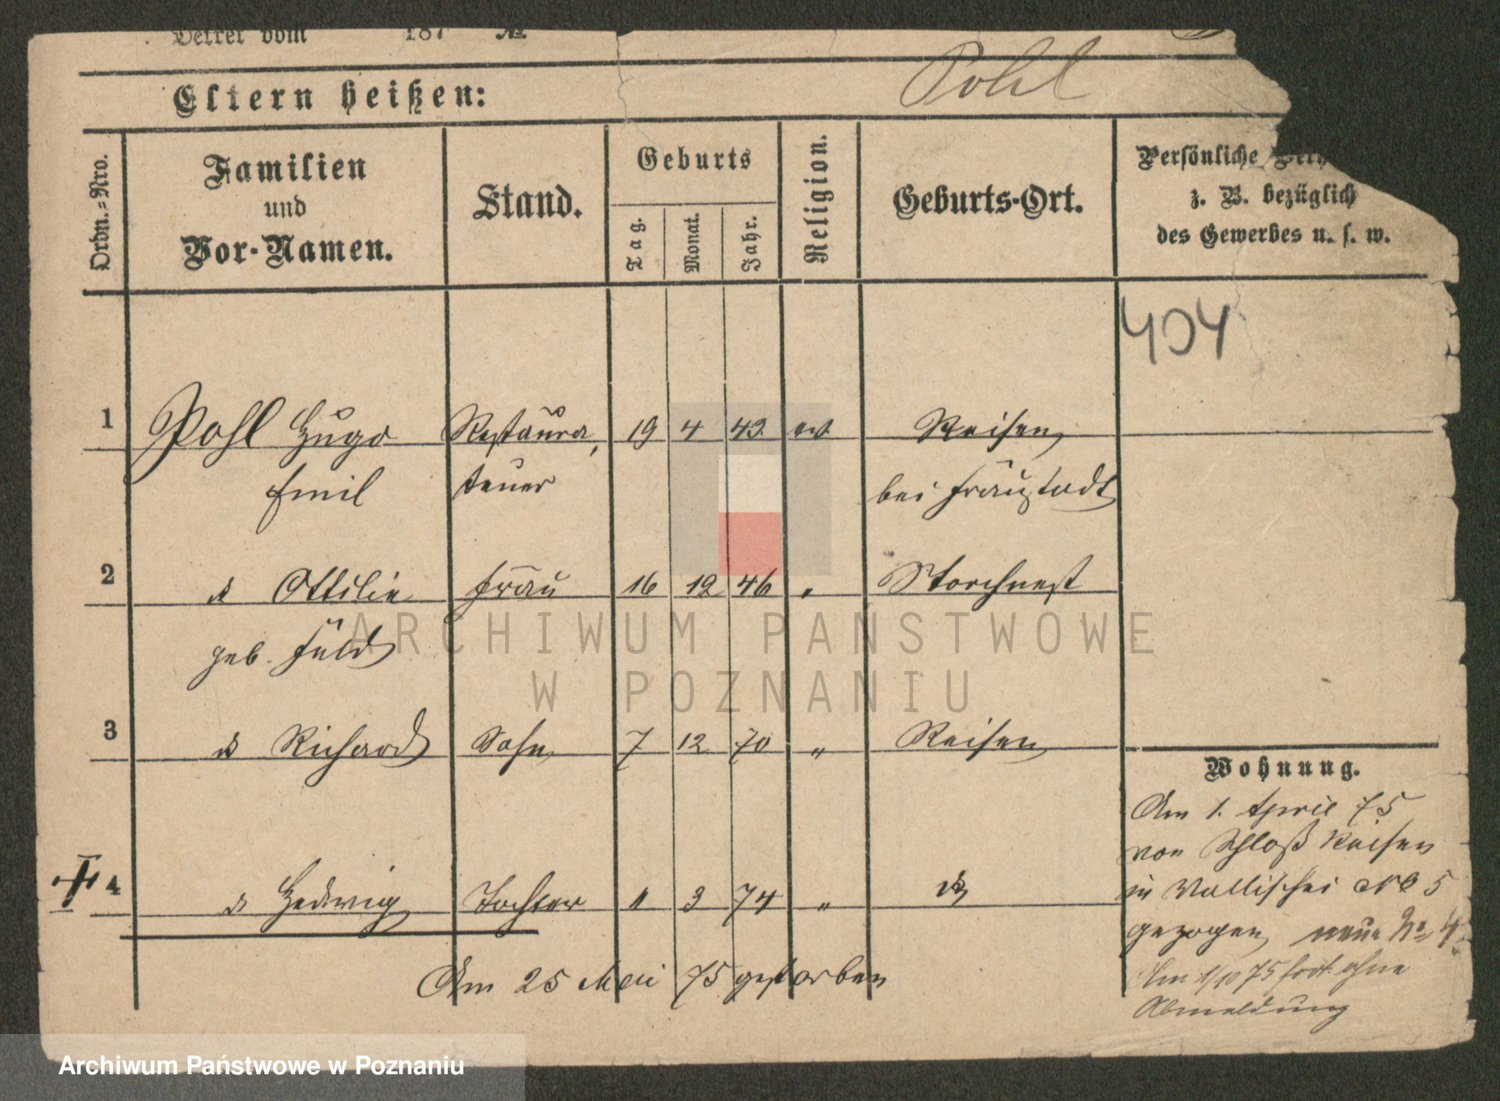 Dekret vom 187 No.
Eltern heißen: Pohl
Ordn.=Nro.
Familien
und
Vor-Namen.
Stand.
Geburts
Tag.
Monat.
Jahr.
Religion.
Geburts-Ort.
Persönliche
z. B. bezüglich
des Gewerbes u. s. w.
404
1 Pohl Hugo Restaura, 19 4 43 ev Reisen
Emil teuer bei Fraustadt
2 d Ottilie Frau 16 12 46 " Storchnest
geb. Füld
3 d Richard Sohn 7 12 70 " Reisen
4 d Hedwig Tochter 1 3 74 " d
Am 25 Mai 75 gestorben
Wohnung.
Am 1. April 75
von Schloß Reisen
in Wallischei No 5
gezogen, neue No 4
Am 1/10 75 fort ohne
Abmeldung
ARCHIWUM PAŃSTWOWE
W POZNANIU
Archiwum Państwowe w Poznaniu